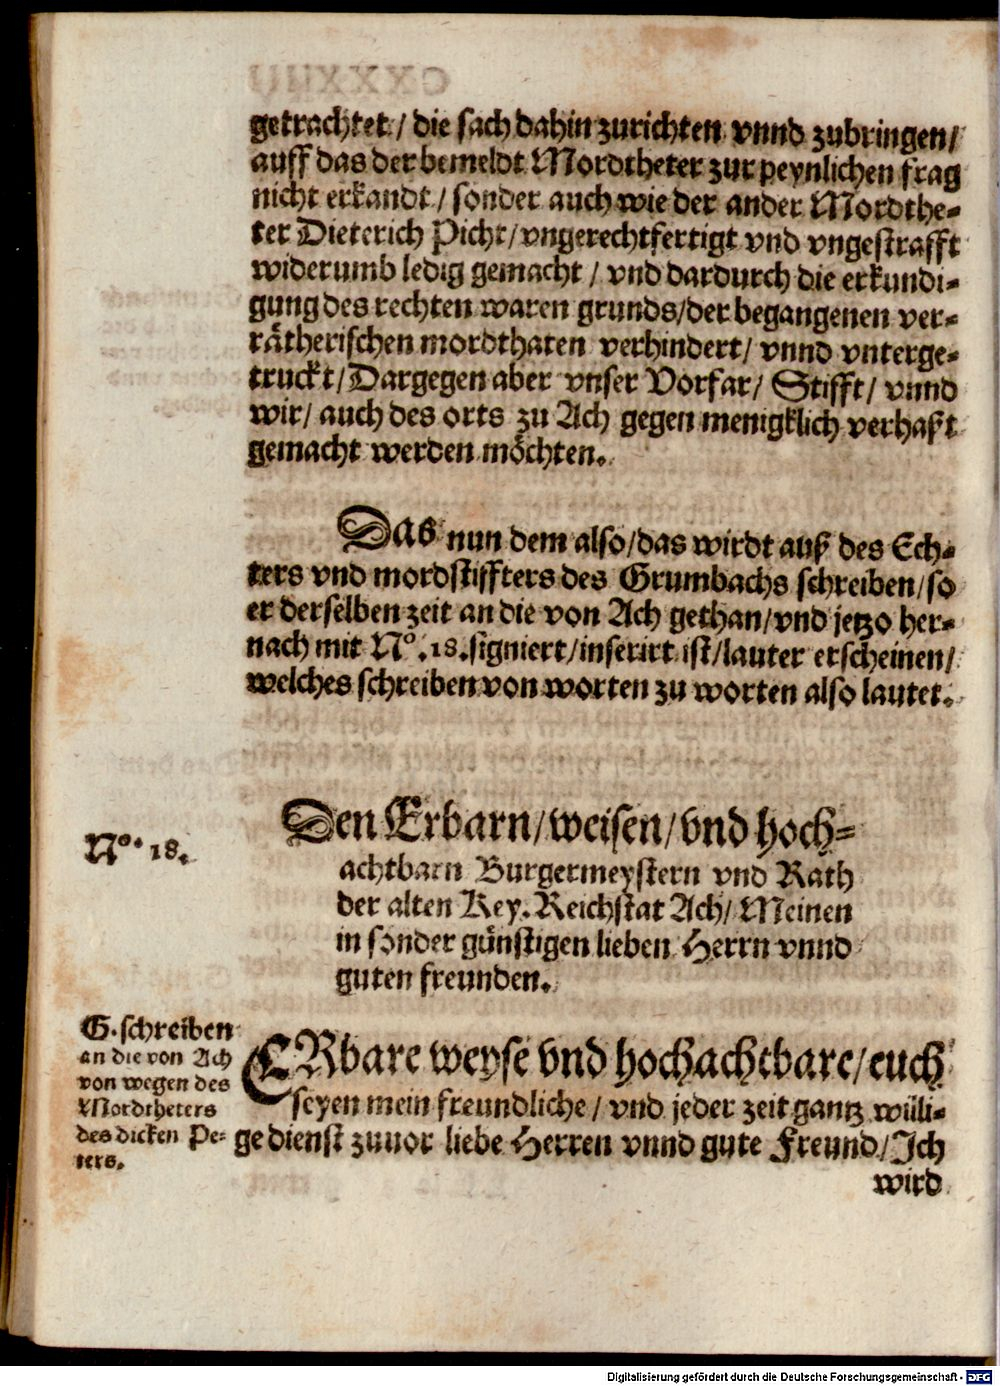 getrachtet / die sach dahin zurichten vnnd zubringen /
auff das der bemeldt Mordtheter zur peynlichen frag
nicht erkandt / sonder auch wie der ander Mordthe-
ter Dieterich Picht / vngerechtfertigt vnd vngestrafft
widerumb ledig gemacht / vnd dardurch die erkundi-
gung des rechten waren grunds / der begangenen ver-
rätherischen mordthaten verhindert / vnnd vnterge-
truckt / Dargegen aber vnser Vorfar / Stifft / vnnd
wir / auch des orts zu Ach gegen menigklich verhaßt
gemacht werden möchten.
Das nun dem also / das wirdt auß des Ech-
ters vnd mordstiffters des Grumbachs schreiben / so
er derselben zeit an die von Ach gethan / vnd jetzo her-
nach mit Nº. 18. signiert / inserirt ist / lauter erscheinen /
welches schreiben von worten zu worten also lautet.
Nº. 18.
Den Erbarn / weisen / vnd hoch-
achtbarn Burgermeystern vnd Rath
der alten Key. Reichstat Ach / Meinen
in sonder günstigen lieben Herrn vnnd
guten freunden.
G. schreiben
an die von Ach
von wegen des
Mordtheters
des dicken Pe-
ters.
ERbare weyse vnd hochachtbare / euch
seyen mein freundliche / vnd jeder zeit gantz willi-
ge dienst zuuor liebe Herren vnnd gute Freund / Ich
wird
Digitalisierung gefördert durch die Deutsche Forschungsgemeinschaft - DFG